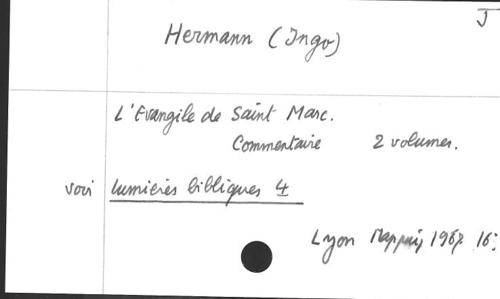 J
Hermann (Ingo)
L'Evangile de Saint Marc.
Commentaire 2 volumes.
voir lumières bibliques 4
Lyon Mappus 1967 16: